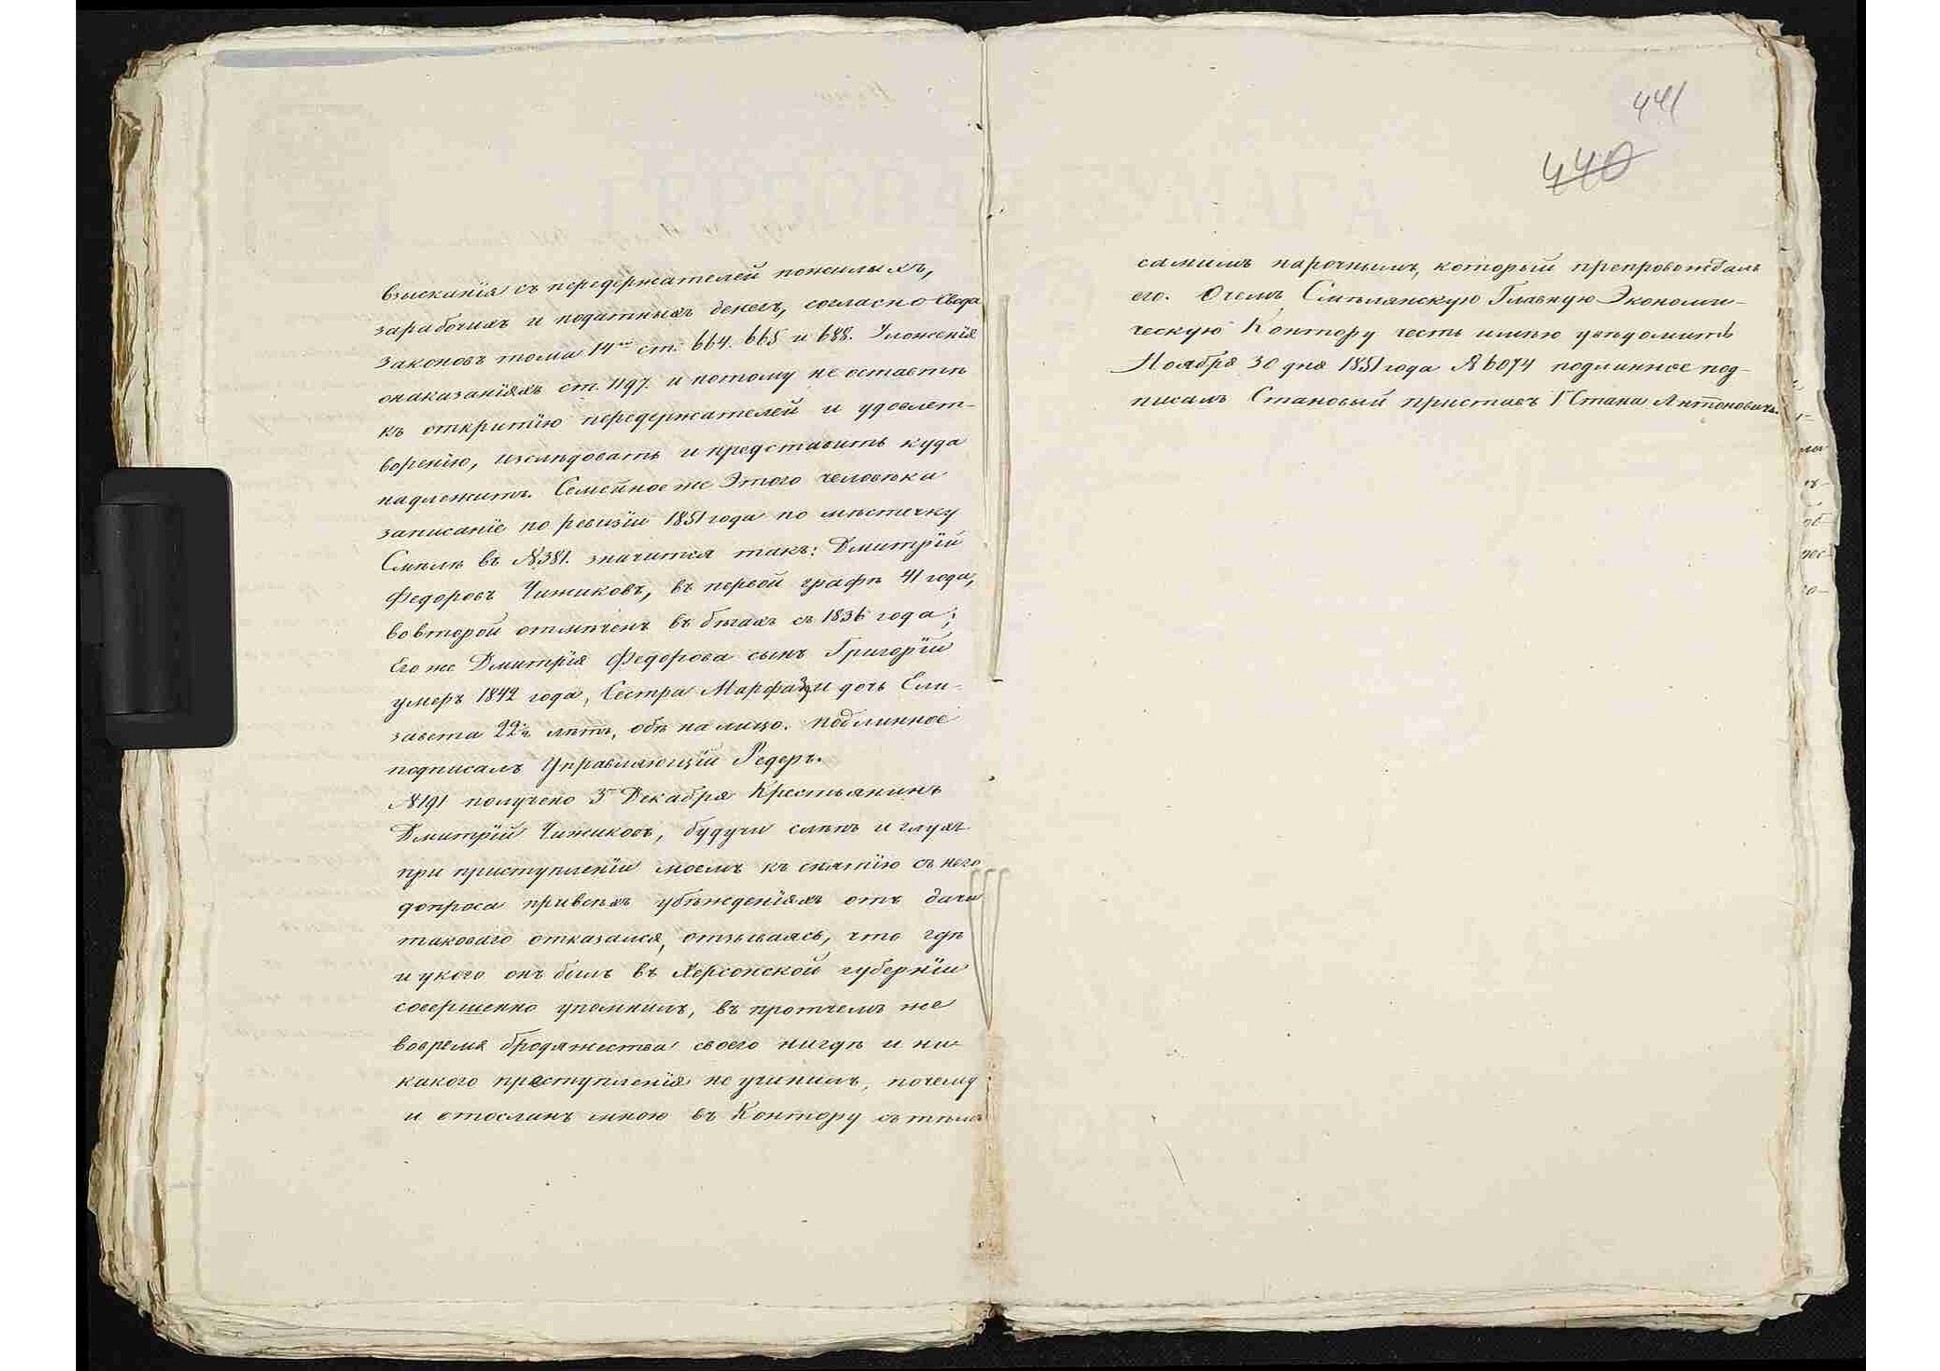 взысканія съ передержателей пожилыхъ,
заработихъ и податныхъ денегъ, согласно Свода
Законовъ тома 14го ст. 664. 665 и 688. Уложенія
онаказаніяхъ ст. 1197. и потому не оставтѣ
къ открытію передержателей и удовлет-
ворѣнію, изслѣдовать и представить куда
надлежитъ. Семейное же Этого человѣка
записаніе по ревизіи 1851 года по мѣстечку
Смѣлѣ въ №381. значится такъ: Дмитрій
Федоровъ Чижиковъ, въ первой графѣ 41 года,
вовторой отмѣченъ въ бѣгахъ съ 1836 года;
Его же Дмитрія Федорова сынъ Григорій
умеръ 1842 года, Сестра Марфа и дочь Ели-
завета 22 лѣтъ, обѣ на лицо. подлинное
подписалъ Управляющій Редеръ.
№191 получено 3 Декабря Крестьянинъ
Дмитрій Чижиковъ, будучи слѣпъ и глухъ
при приступленіи моемъ къ снятію съ него
допроса привсѣхъ убѣжденіяхъ отъ дачи
таковаго отказался, отзываясь, что гдѣ
и укого онъ былъ въ Херсонской губерніи
совершенно упомнилъ, въ протчемъ же
вовремя бродяжества своего нигдѣ и ни-
какого преступленія не учинилъ, почему
и отосланъ мною въ Контору съ тѣмъ
441
440
самимъ нарочнымъ, который препровождалъ
его. Очемъ Смѣлянскую Главную Экономи-
ческую Контору честь имѣю увѣдомить
Ноября 30 дня 1851 года № 6074 подлинное под-
писалъ Становый приставъ Г Стана Антоновичъ.